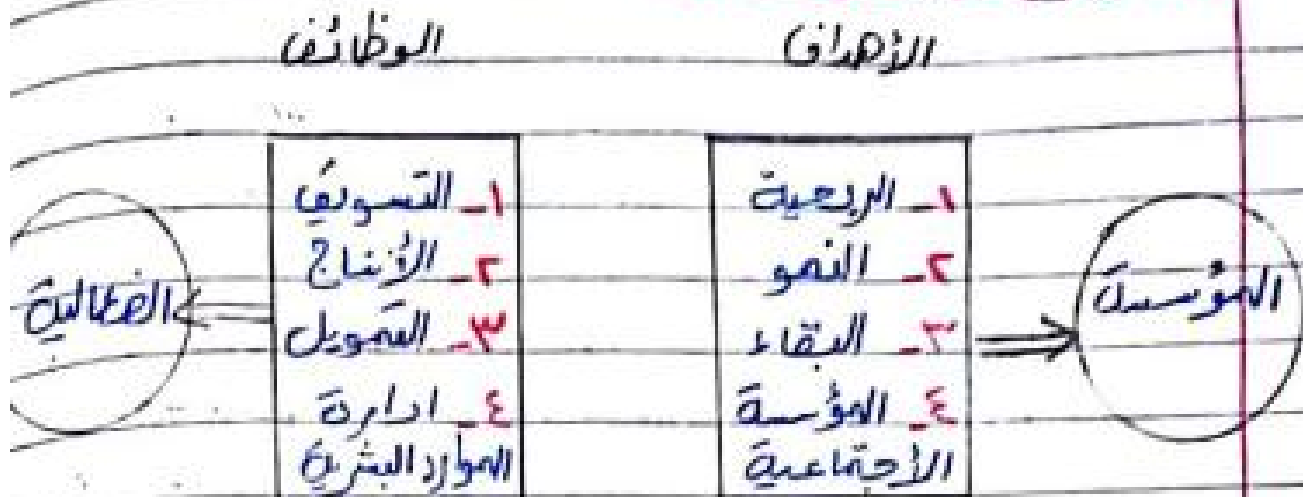 الأهداف
الوظائف
المؤسسة
١- الربحية
٢- النمو
٣- البقاء
٤- المؤسسة
الأجتماعية
١- التسويق
٢- الأنتاج
٣- التمويل
٤- ادارة
الموارد البشرية